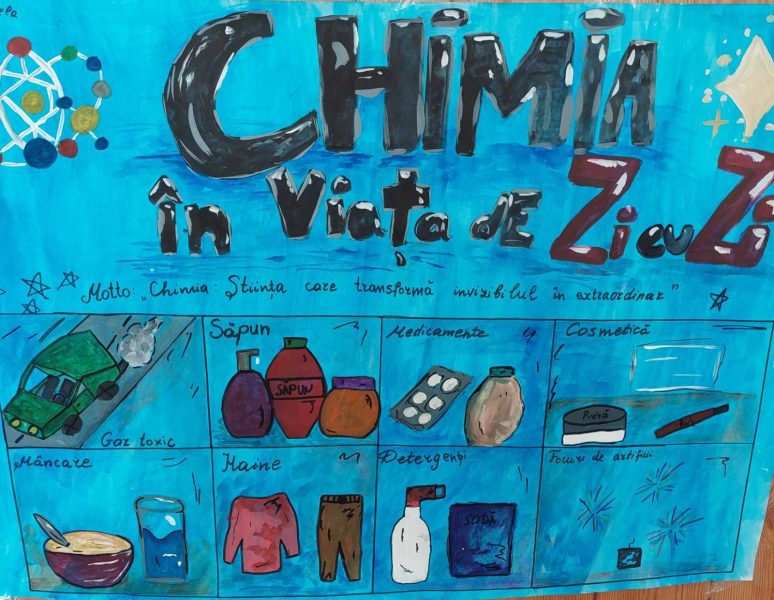 CHIMIA
în Viața dE Zi cu Zi
Motto: „Chimia: Știința care transformă invizibilul în extraordinar"
Gaz toxic
Săpun
SĂPUN
Medicamente
Cosmetică
Pudră
Mâncare
Haine
Detergenți
SODĂ
Focuri de artificii